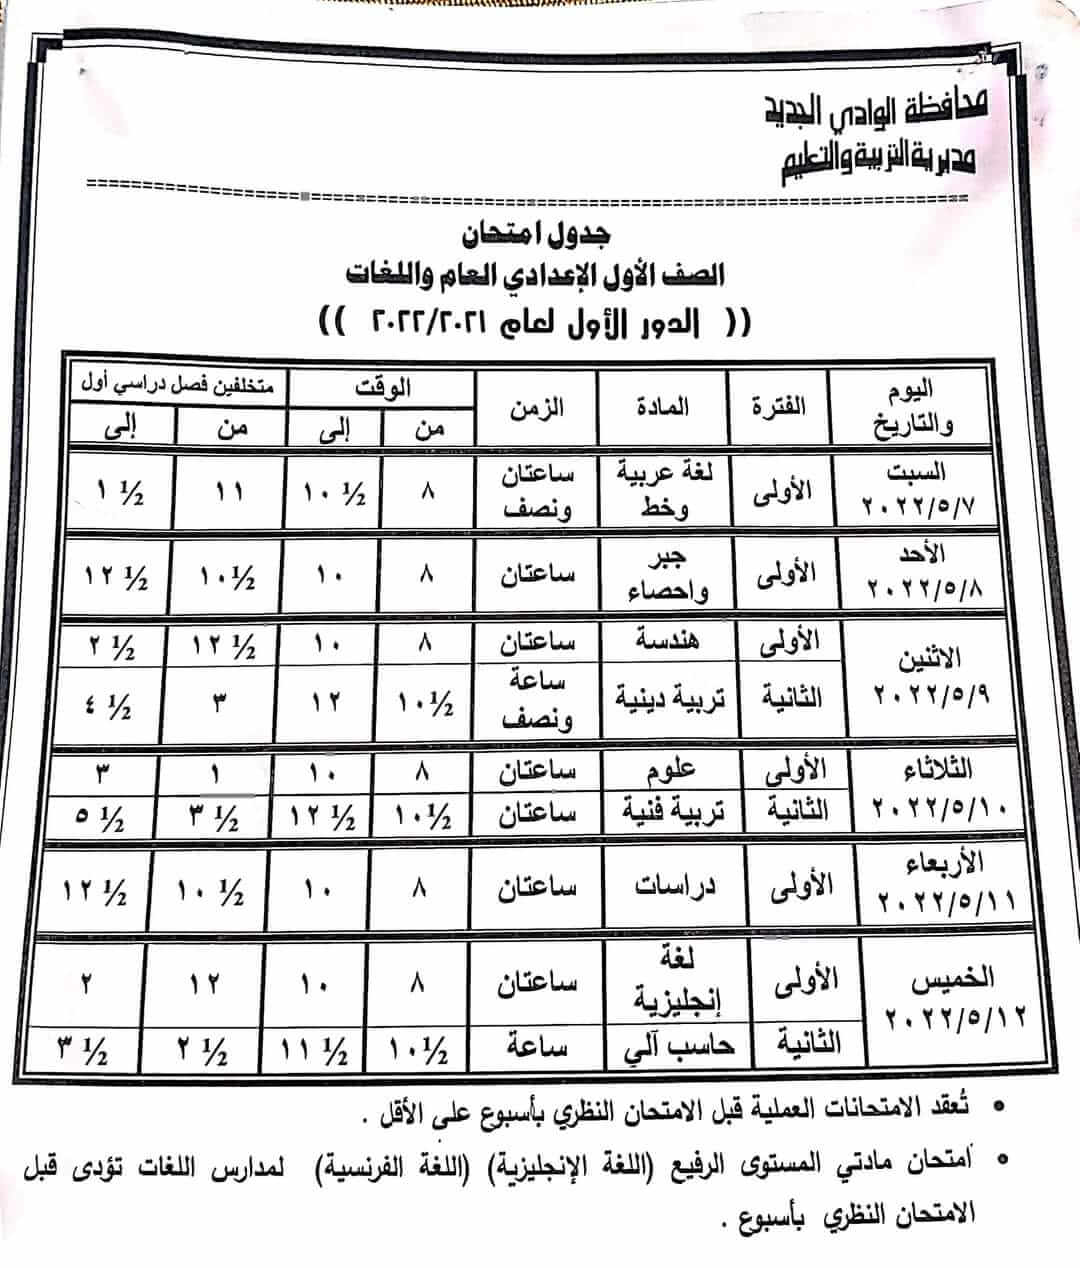 محافظة الوادي الجديد
مديرية التربية والتعليم
جدول امتحان
الصف الأول الإعدادي العام واللغات
(( الدور الأول لعام ٢٠٢٢/٢٠٢١ ))
اليوم والتاريخ | الفترة | المادة | الزمن | الوقت | متخلفين فصل دراسي أول
من | إلى | من | إلى
السبت ٢٠٢٢/٥/٧ | الأولى | لغة عربية وخط | ساعتان ونصف | ٨ | ١٠ ½ | ١١ | ١ ½
الأحد ٢٠٢٢/٥/٨ | الأولى | جبر واحصاء | ساعتان | ٨ | ١٠ | ١٠½ | ١٢ ½
الاثنين ٢٠٢٢/٥/٩ | الأولى | هندسة | ساعتان | ٨ | ١٠ | ١٢ ½ | ٢ ½
الثانية | تربية دينية | ساعة ونصف | ١٠½ | ١٢ | ٣ | ٤ ½
الثلاثاء ٢٠٢٢/٥/١٠ | الأولى | علوم | ساعتان | ٨ | ١٠ | ١ | ٣
الثانية | تربية فنية | ساعتان | ١٠½ | ١٢ ½ | ٣ ½ | ٥ ½
الأربعاء ٢٠٢٢/٥/١١ | الأولى | دراسات | ساعتان | ٨ | ١٠ | ١٠ ½ | ١٢ ½
الخميس ٢٠٢٢/٥/١٢ | الأولى | لغة إنجليزية | ساعتان | ٨ | ١٠ | ١٢ | ٢
الثانية | حاسب آلي | ساعة | ١٠½ | ١١ ½ | ٢ ½ | ٣ ½
• تُعقد الامتحانات العملية قبل الامتحان النظري بأسبوع على الأقل .
• امتحان مادتي المستوى الرفيع (اللغة الإنجليزية) (اللغة الفرنسية) لمدارس اللغات تؤدى قبل
الامتحان النظري بأسبوع .